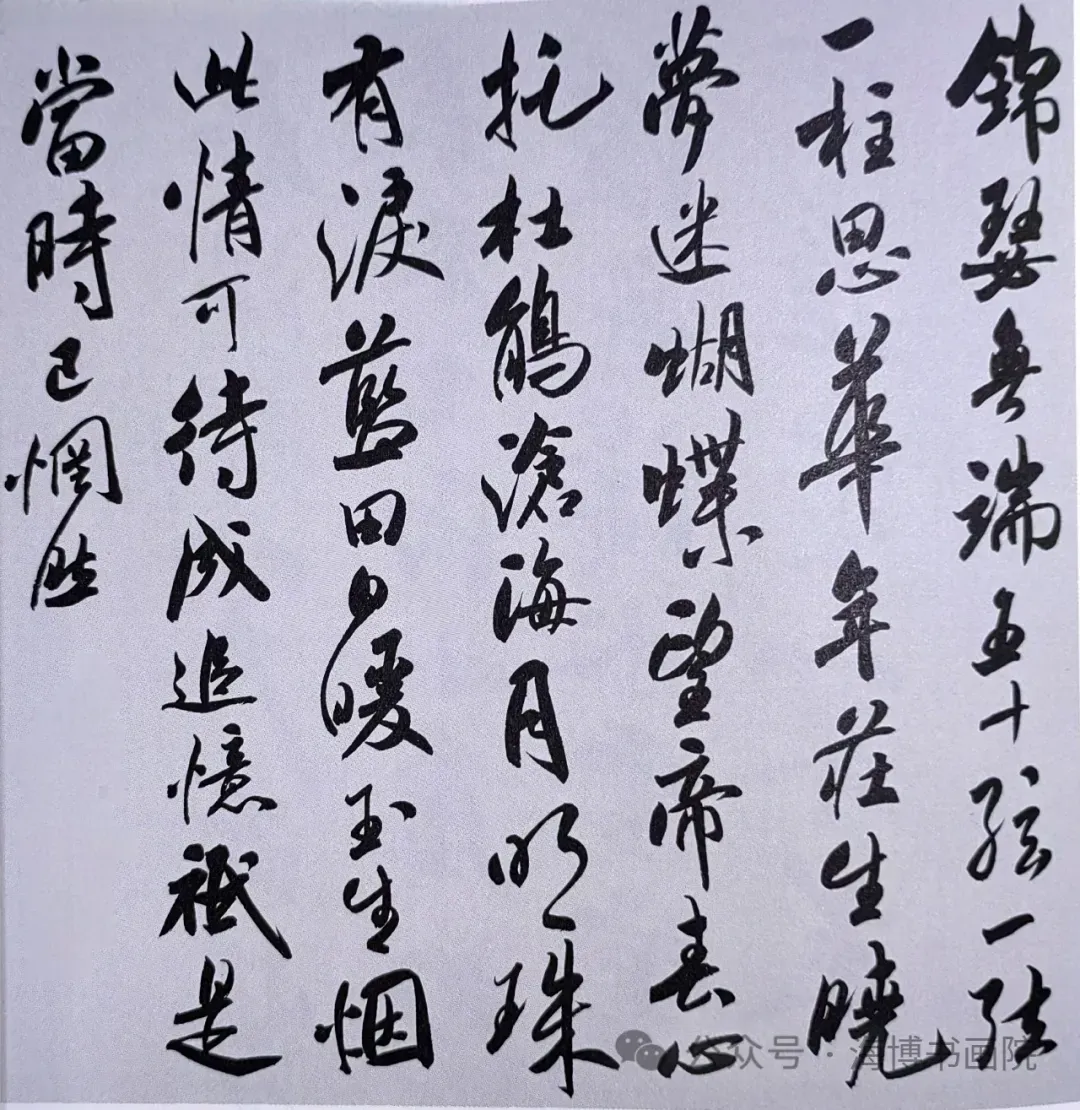 錦瑟無端五十弦一弦
一柱思華年莊生曉
夢迷蝴蝶望帝春心
托杜鵑滄海月明珠
有淚藍田日暖玉生烟
此情可待成追憶祗是
當時已惘然
公众号·海博书画院